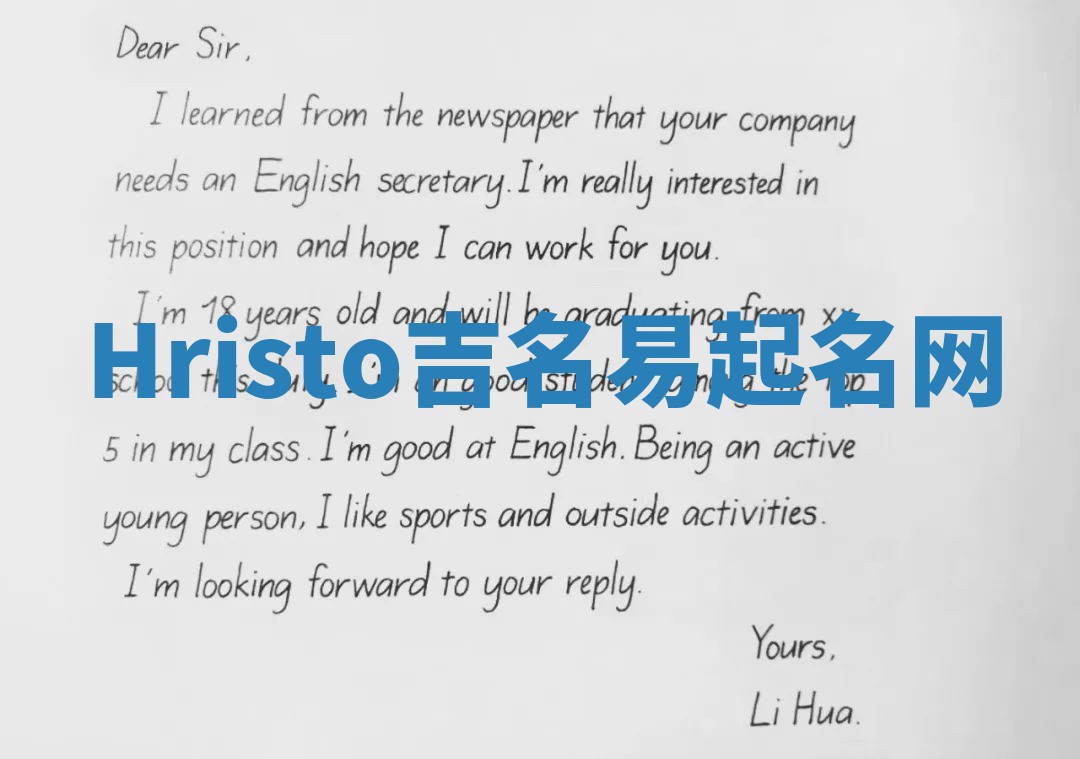 Dear Sir,
I learned from the newspaper that your company
needs an English secretary. I'm really interested in
this position and hope I can work for you.
I'm 18 years old and will be graduating from xx
Hristo吉名易起名网
school this July. I'm an good student among the top
5 in my class. I'm good at English. Being an active
young person, I like sports and outside activities.
I'm looking forward to your reply.
Yours,
Li Hua.